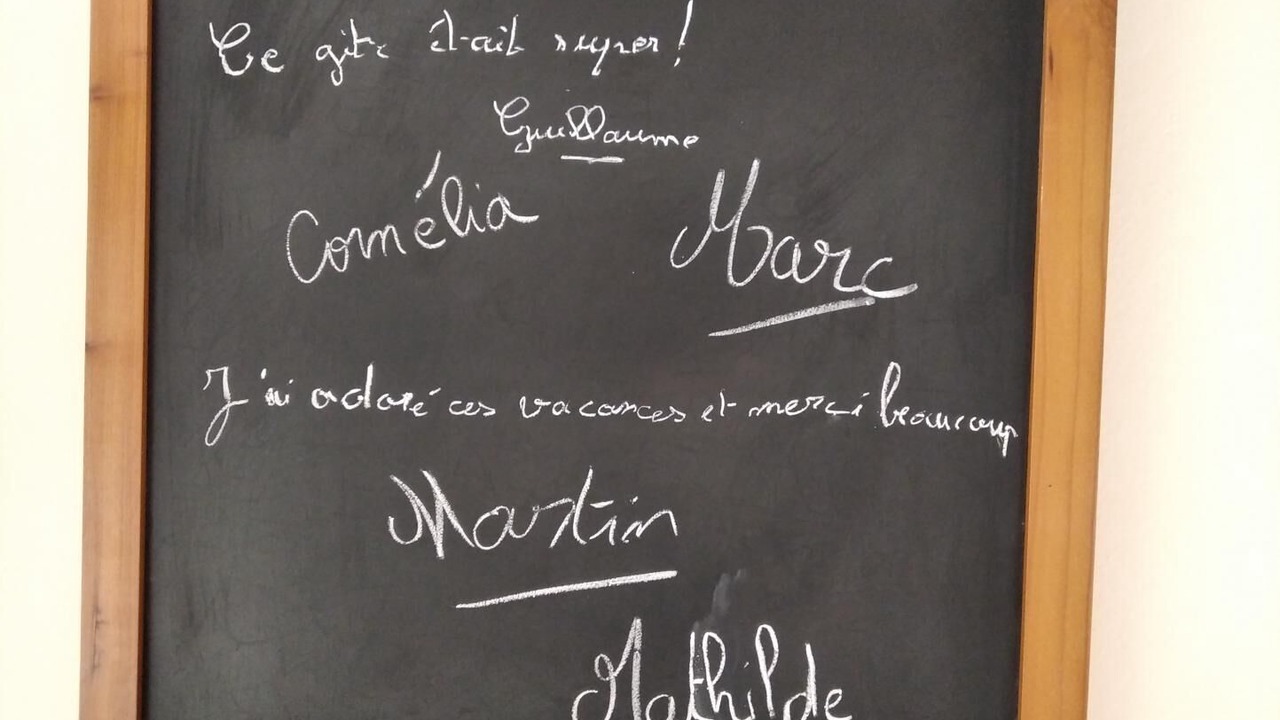 Ce gite était super !
Guillaume
Cornélia Marc
J'ai adoré ces vacances et merci beaucoup
Martin
Mathilde